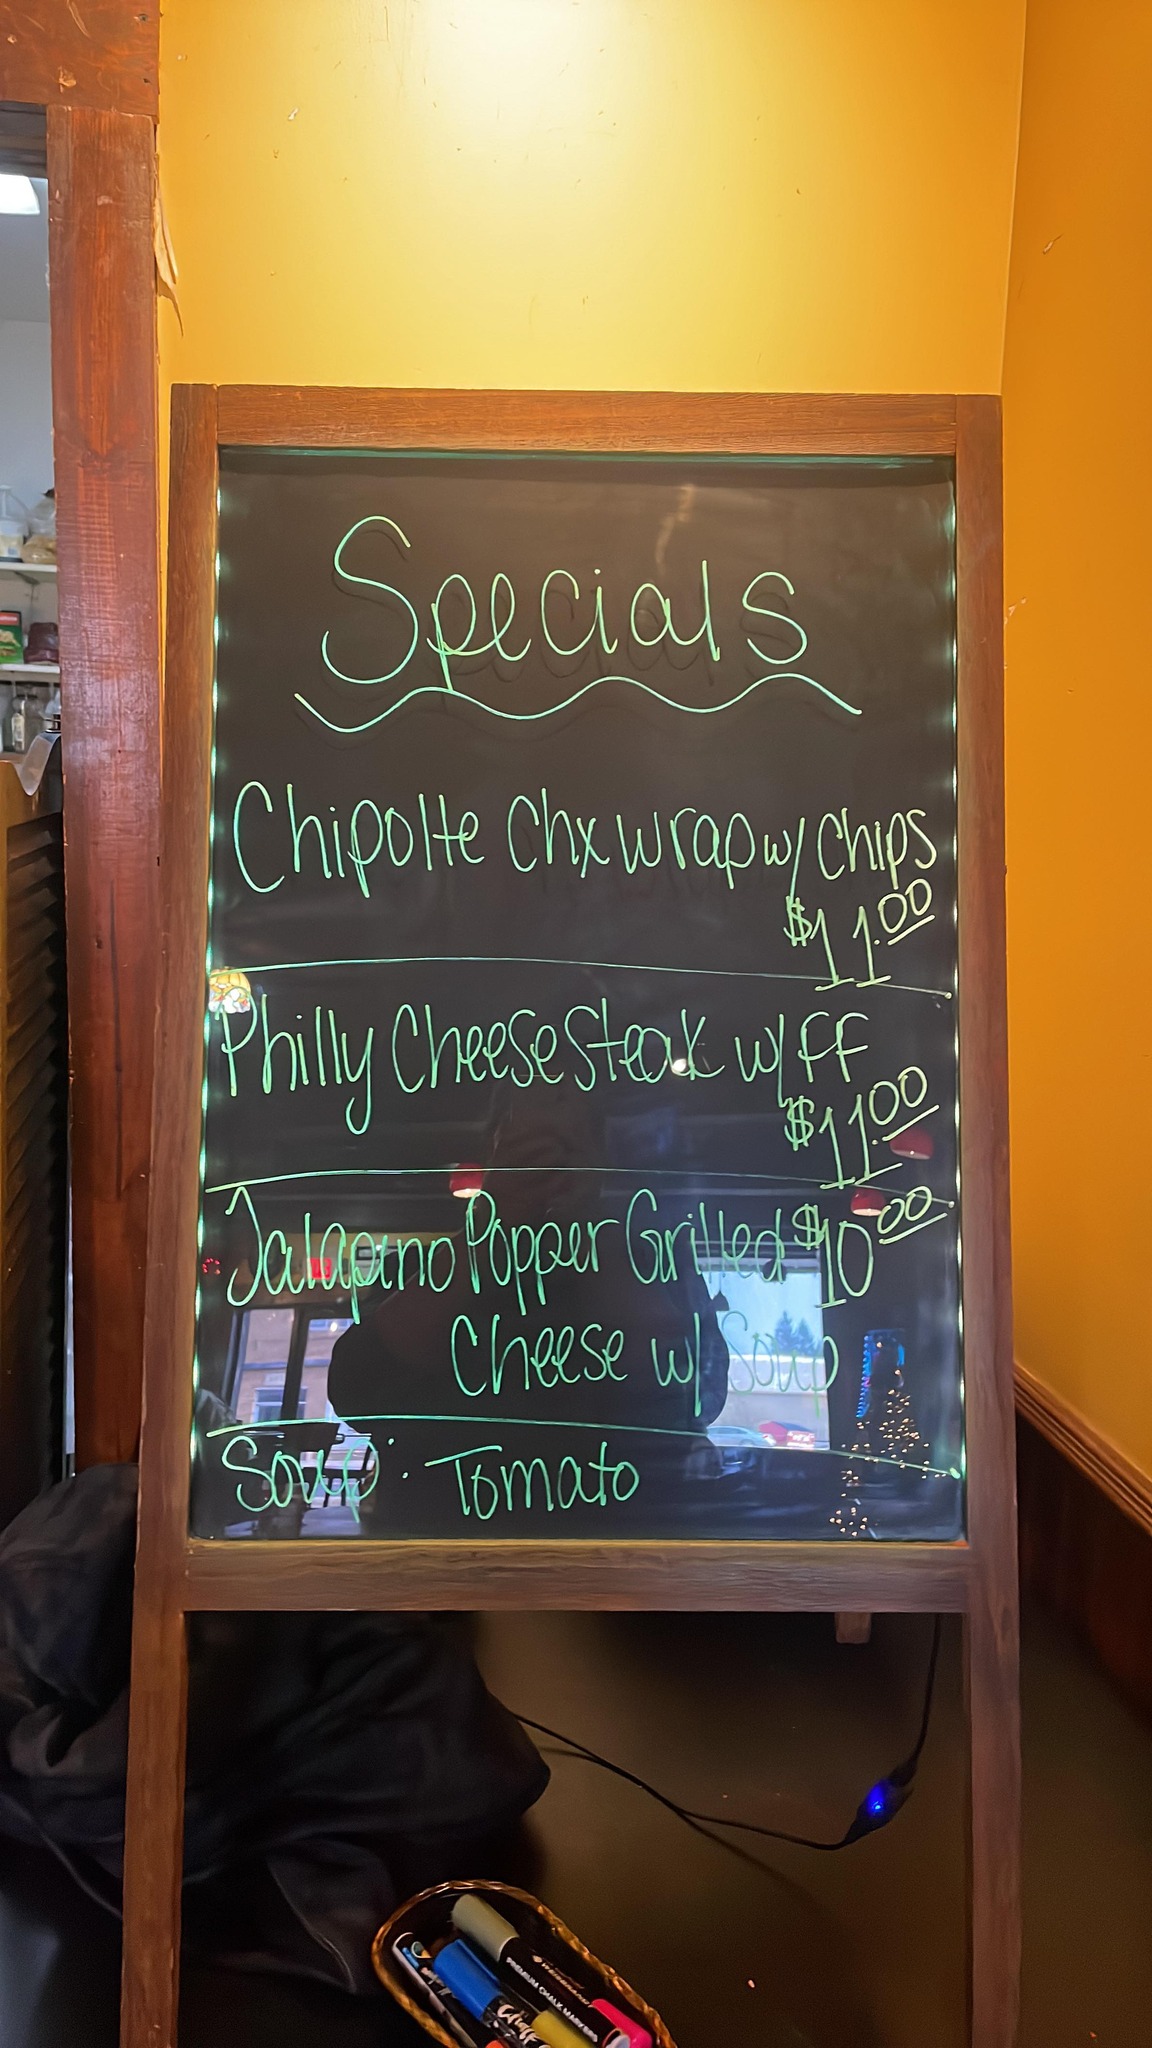 Specials
Chipolte Chx wrap w/ Chips
$11.00
Philly Cheese Steak w/ FF
$11.00
Jalapino Popper Grilled $10.00
Cheese w/ Soup
Soup: Tomato
PREMIUM CHALK MARKERS
Chalk